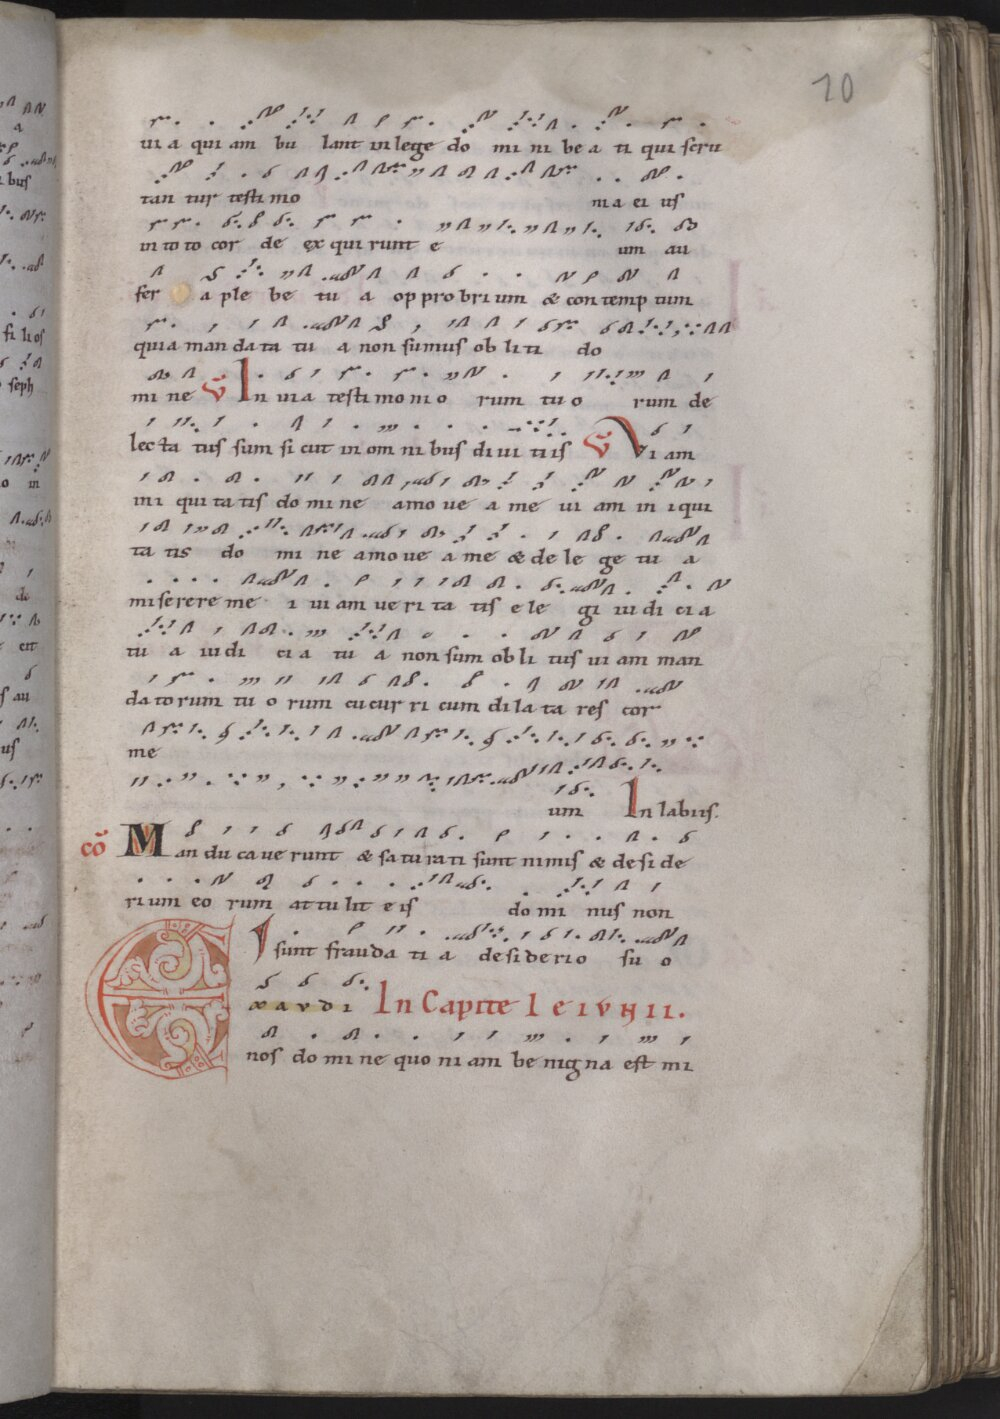 20
ui a qui am bu lant in lege do mi ni be a ti qui scru
tan tur testi mo ni a ei us
in to to cor de ex qui runt e um au
fer a ple be tu a op pro bri um & con temp tum
quia man da ta tu a non sumus ob li ti do
mi ne V In uia testi mo ni o rum tu o rum de
lecta tus sum si cut in om ni bus di ui ti is V Vi am
ini qui ta tis do mi ne amo ue a me ui am in i qui
ta tis do mi ne amo ue a me & de le ge tu a
miserere me i ui am ue ri ta tis e le gi iu di ci a
tu a iu di ci a tu a non sum ob li tus ui am man
da to rum tu o rum cu cur ri cum di la ta res cor
me
um In labiis.
co Man du ca ue runt & sa tu ra ti sunt nimis & de si de
ri um eo rum at tu lit e is do mi nus non
sunt frauda ti a de si de ri o su o
Exaudi In Capite Ieiunii.
nos do mi ne quo ni am be nigna est mi